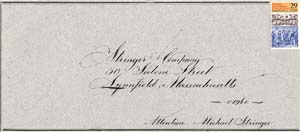 29
Stringer Company
50 Salem Street
Lynnfield, Massachusetts
01940
Attention Michael Stringer